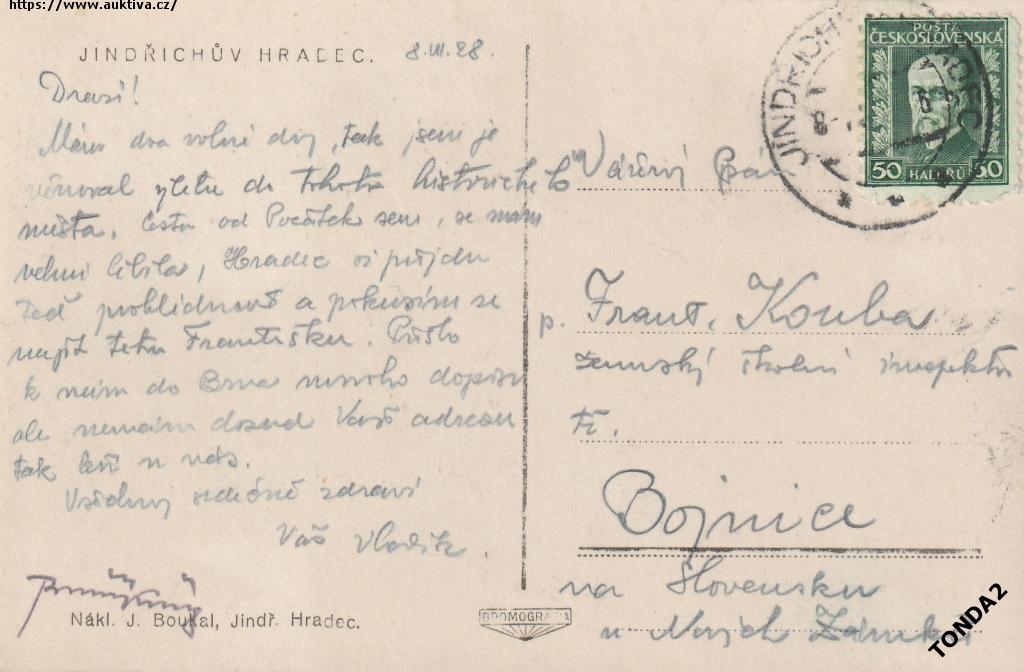 https://www.auktiva.cz/
JINDŘICHŮV HRADEC. 8.III.28.
Drazí!
Mám dva volné dny, tak jsem je
věnoval výletu do tohoto historického
města. Cesta od Počátek sem, se mám
velmi líbila, Hradec si půjdu
teď prohlédnout a pokusím se
najít tetu Františku. Přišlo
k nám do Brna mnoho dopisů
ale nemám dosud Vaši adresu
tak leží u nás.
Všechny srdečně zdraví
Váš Vladík.
Nákl. J. Boukal, Jindř. Hradec.
BROMOGRAFIA
POŠTA
ČESKOSLOVENSKÁ
50 HALÉŘŮ 50
JINDŘICHŮV HRADEC
Vážený Pán
p. Frant. Kouba
zemský školní inspektor
Bojnice
na Slovensku
u Nových Zámků
TONDA2